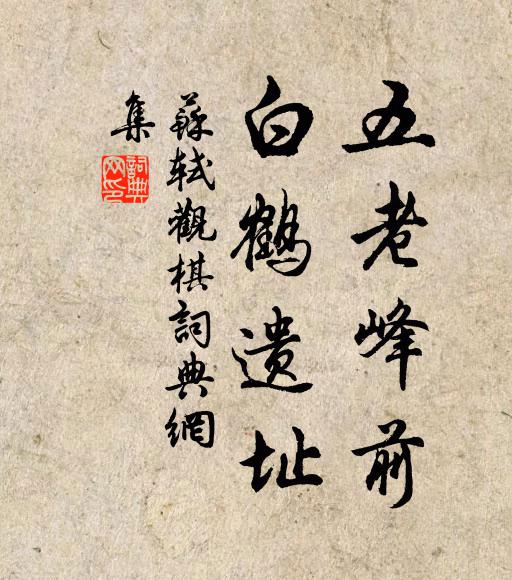 五老峰前
白鹤遗址
蘇軾觀棋詞典網
集
詞典
网印